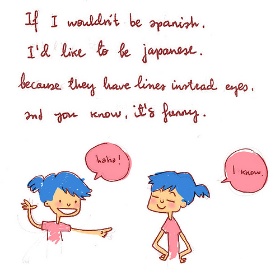 If I wouldn't be spanish.
I'd like to be japanese.
because they have lines instead eyes.
and you know, it's funny.
haha!
I know.